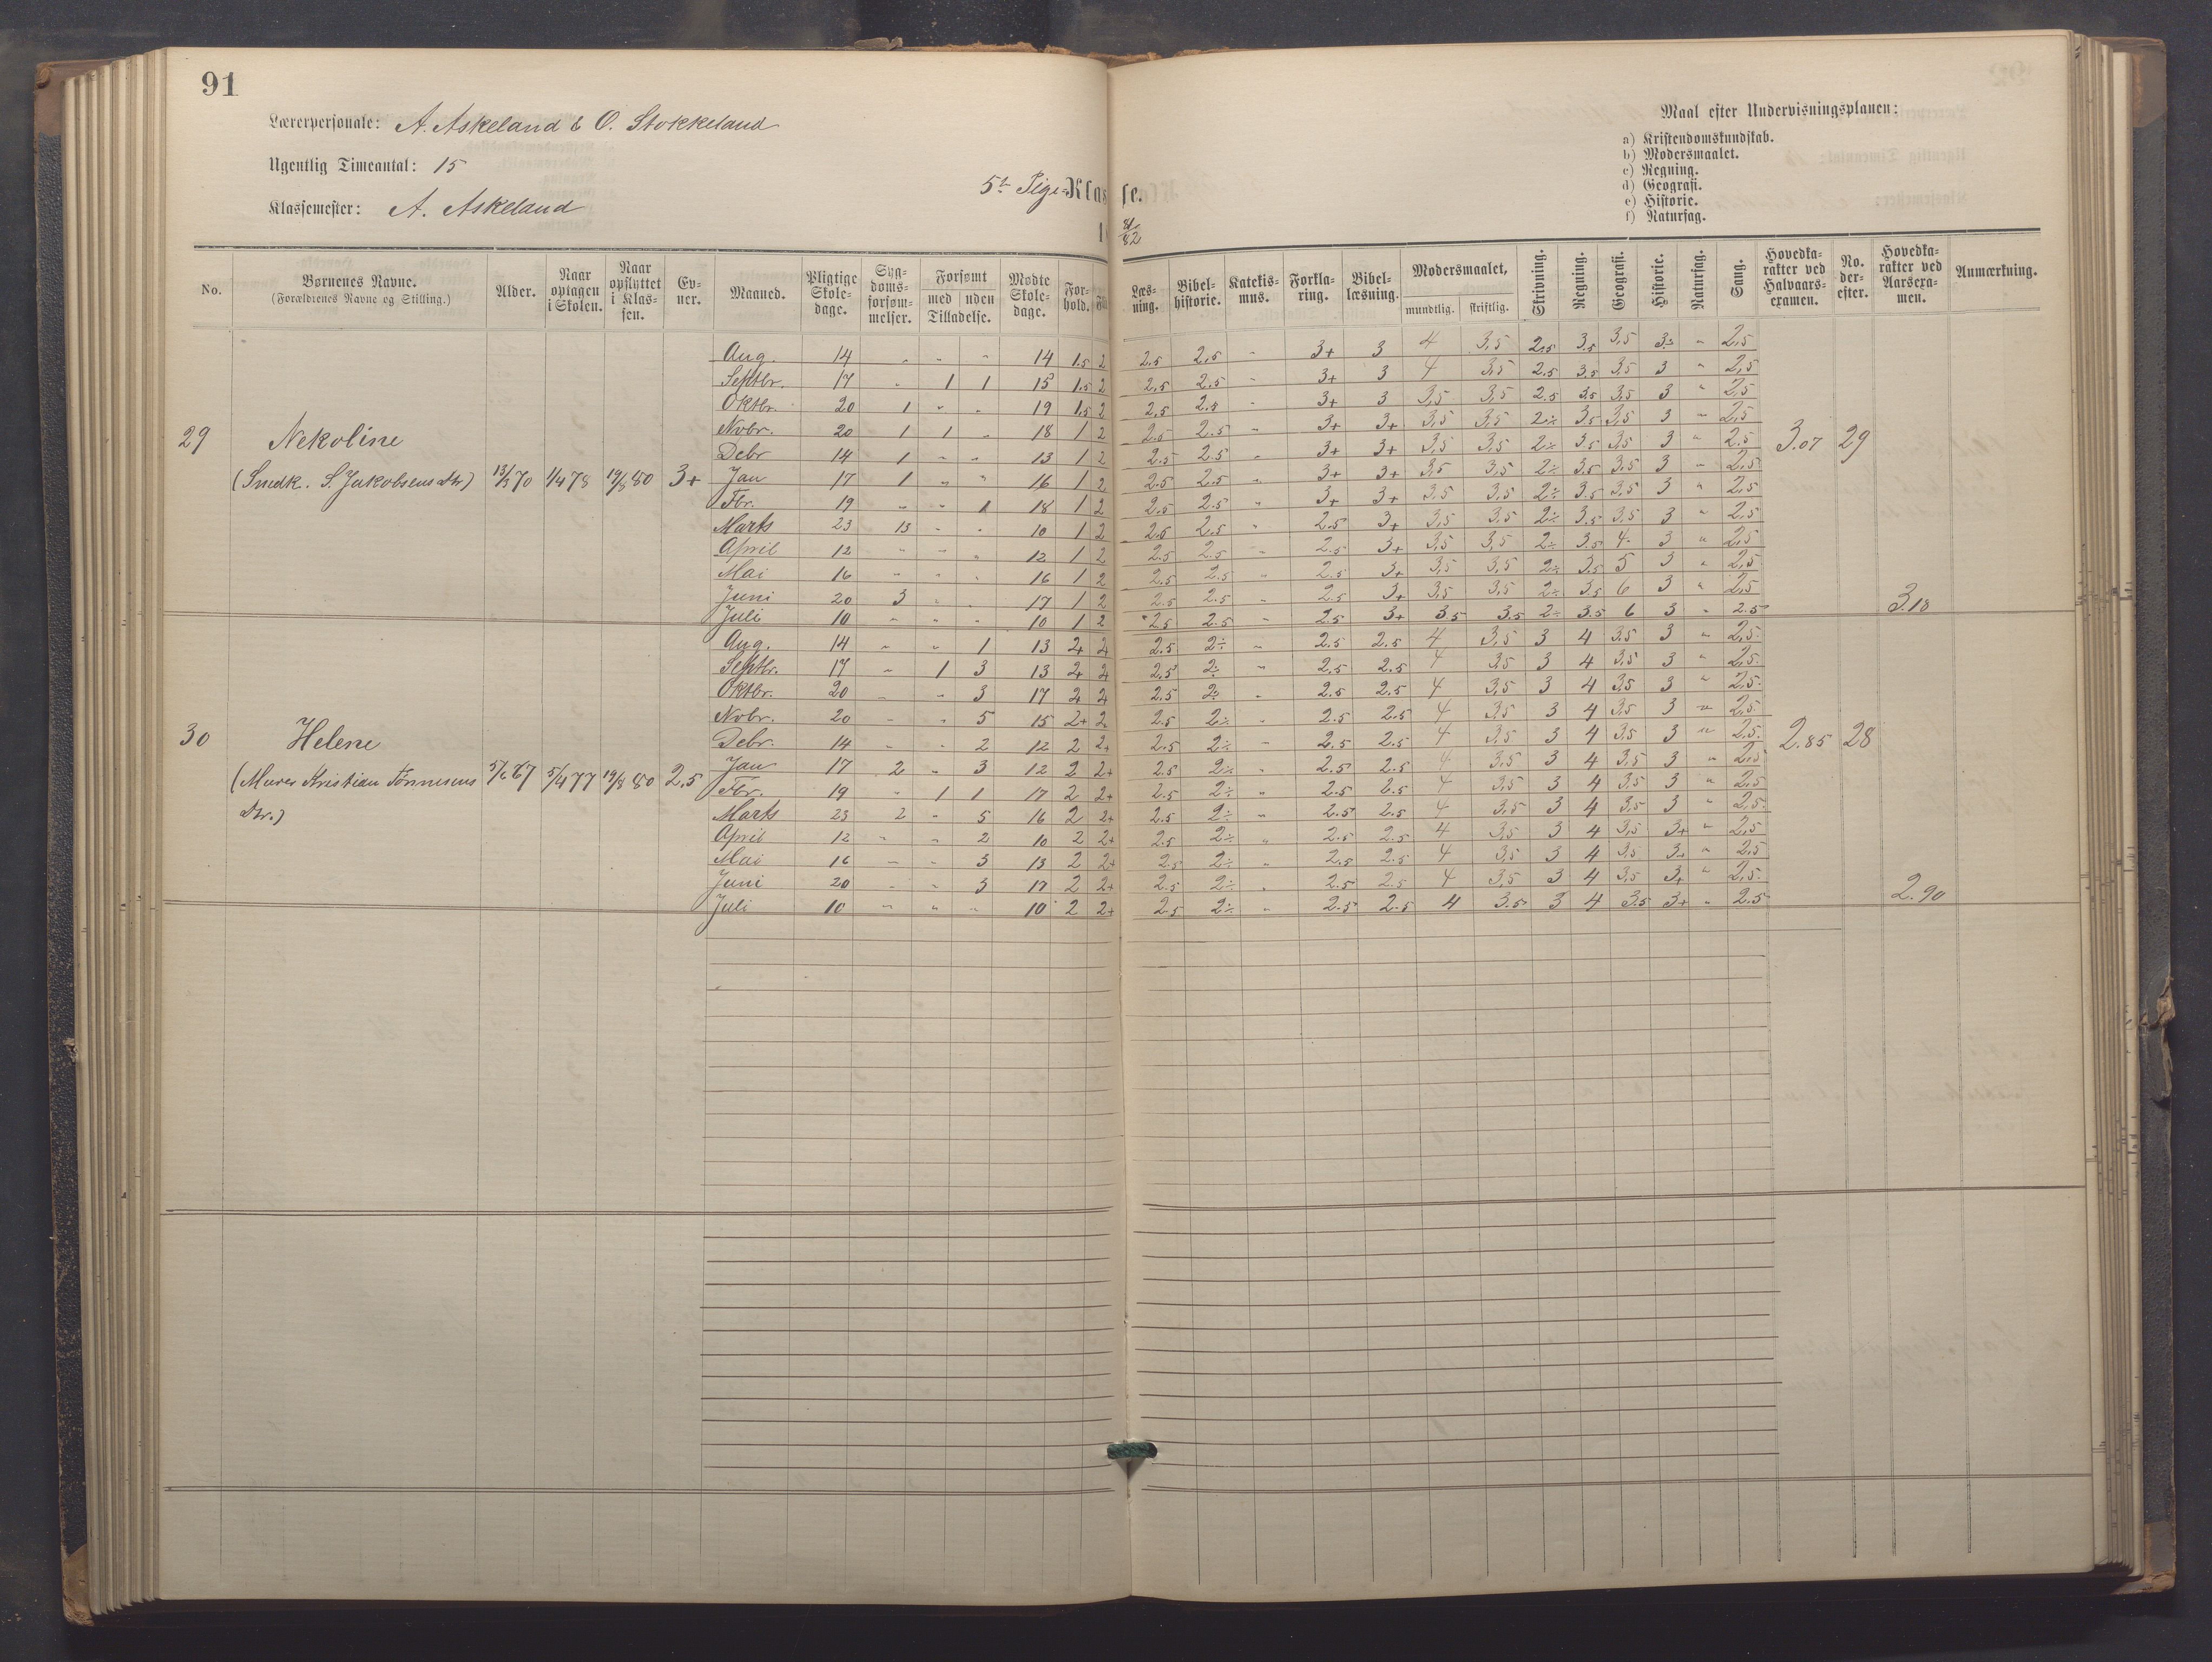 91
Lærerpersonale: A. Askeland & O. Stokkeland
Ugentlig Timeantal: 15
Klassemester: A. Askeland
5te Pige-Klasse.
81/82
Maal efter Undervisningsplanen:
a) Kristendomskundskab.
b) Modersmaalet.
c) Regning.
d) Geografi.
e) Historie.
f) Naturfag.
No. Børnenes Navne. (Forældrenes Navne og Stilling.) Alder. Naar optagen i Skolen. Naar opflyttet i Klassen. Evner. Maaned. Pligtige Skoledage. Sygdomsforsømmelser. Forsømt med uden Tilladelse. Mødte Skoledage. Forhold. Læsning. Bibelhistorie. Katekismus. Forklaring. Bibellæsning. Modersmaalet, mundtlig. skriftlig. Skrivning. Regning. Geografi. Historie. Naturfag. Sang. Hovedkarakter ved Halvaarsexamen. No. derefter. Hovedkarakter ved Aarsexamen. Anmærkning.
29 Nekoline
(Snedk. S. Jakobsens Dtr) 13/3 70 1/4 78 19/8 80 3+
Aug. 14 " " " 14 1.5 2 2.5 2.5 " 3+ 3 4 3,5 2.5 3.5 3,5 3÷ " 2,5
Septbr. 17 " 1 1 15 1.5 2 2.5 2.5 " 3+ 3 4 3,5 2.5 3.5 3,5 3 " 2,5
Oktbr. 20 1 " " 19 1.5 2 2,5 2.5 " 3+ 3 3,5 3,5 2.5 3.5 3,5 3 " 2,5
Novbr. 20 1 1 " 18 1 2 2.5 2.5 " 3+ 3+ 3,5 3,5 2÷ 3.5 3,5 3 " 2,5
Debr 14 1 " " 13 1 2 2.5 2.5 " 3+ 3+ 3,5 3,5 2÷ 3.5 3,5 3 " 2.5 3.07 29
Jan 17 1 " " 16 1 2 2.5 2.5 " 3+ 3+ 3,5 3,5 2÷ 3.5 3,5 3 " 2,5
Fbr. 19 " " 1 18 1 2 2.5 2.5 " 3+ 3+ 3,5 3,5 2÷ 3.5 3,5 3 " 2,5
Marts 23 13 " " 10 1 2 2.5 2.5 " 2.5 3+ 3,5 3,5 2÷ 3.5 3,5 3 " 2,5
April 12 " " " 12 1 2 2.5 2.5 " 2.5 3+ 3,5 3,5 2÷ 3.5 4 3 " 2,5
Mai 16 " " " 16 1 2 2.5 2.5 " 2.5 3+ 3,5 3,5 2÷ 3.5 5 3 " 2,5
Juni 20 3 " " 17 1 2 2.5 2.5 " 2.5 3+ 3,5 3,5 2÷ 3.5 6 3 " 2,5
Juli 10 " " " 10 1 2 2.5 2.5 " 2.5 3+ 3.5 3.5 2÷ 3.5 6 3 " 2.5 3.18
30 Helene
(Murer Kristian Tønnesens Dtr.) 5/6 67 5/4 77 19/8 80 2,5
Aug. 14 " " 1 13 2+ 2 2.5 2÷ " 2.5 2.5 4 3,5 3 4 3,5 3 " 2,5
Septbr. 17 " 1 3 13 2+ 2 2.5 2÷ " 2.5 2.5 4 3,5 3 4 3,5 3 " 2,5
Oktbr. 20 " " 3 17 2 2 2.5 2÷ " 2.5 2.5 4 3,5 3 4 3,5 3 " 2,5
Novbr. 20 " " 5 15 2+ 2 2.5 2÷ " 2.5 2.5 4 3,5 3 4 3,5 3 " 2,5
Debr. 14 " " 2 12 2 2+ 2.5 2÷ " 2.5 2.5 4 3,5 3 4 3,5 3 " 2,5 2.85 28
Jan 17 2 " 3 12 2 2+ 2.5 2÷ " 2.5 2.5 4 3,5 3 4 3,5 3 " 2,5
Fbr. 19 " 1 1 17 2 2+ 2.5 2÷ " 2.5 2.5 4 3,5 3 4 3,5 3 " 2,5
Marts 23 2 " 5 16 2 2+ 2.5 2÷ " 2.5 2.5 4 3,5 3 4 3,5 3 " 2,5
April 12 " " 2 10 2 2+ 2.5 2÷ " 2.5 2.5 4 3,5 3 4 3,5 3+ " 2,5
Mai 16 " " 3 13 2 2+ 2.5 2÷ " 2.5 2.5 4 3,5 3 4 3,5 3+ " 2,5
Juni 20 " " 3 17 2 2+ 2.5 2÷ " 2.5 2.5 4 3,5 3 4 3,5 3+ " 2,5
Juli 10 " " " 10 2 2+ 2.5 2÷ " 2.5 2.5 4 3.5 3 4 3.5 3+ " 2.5 2.90